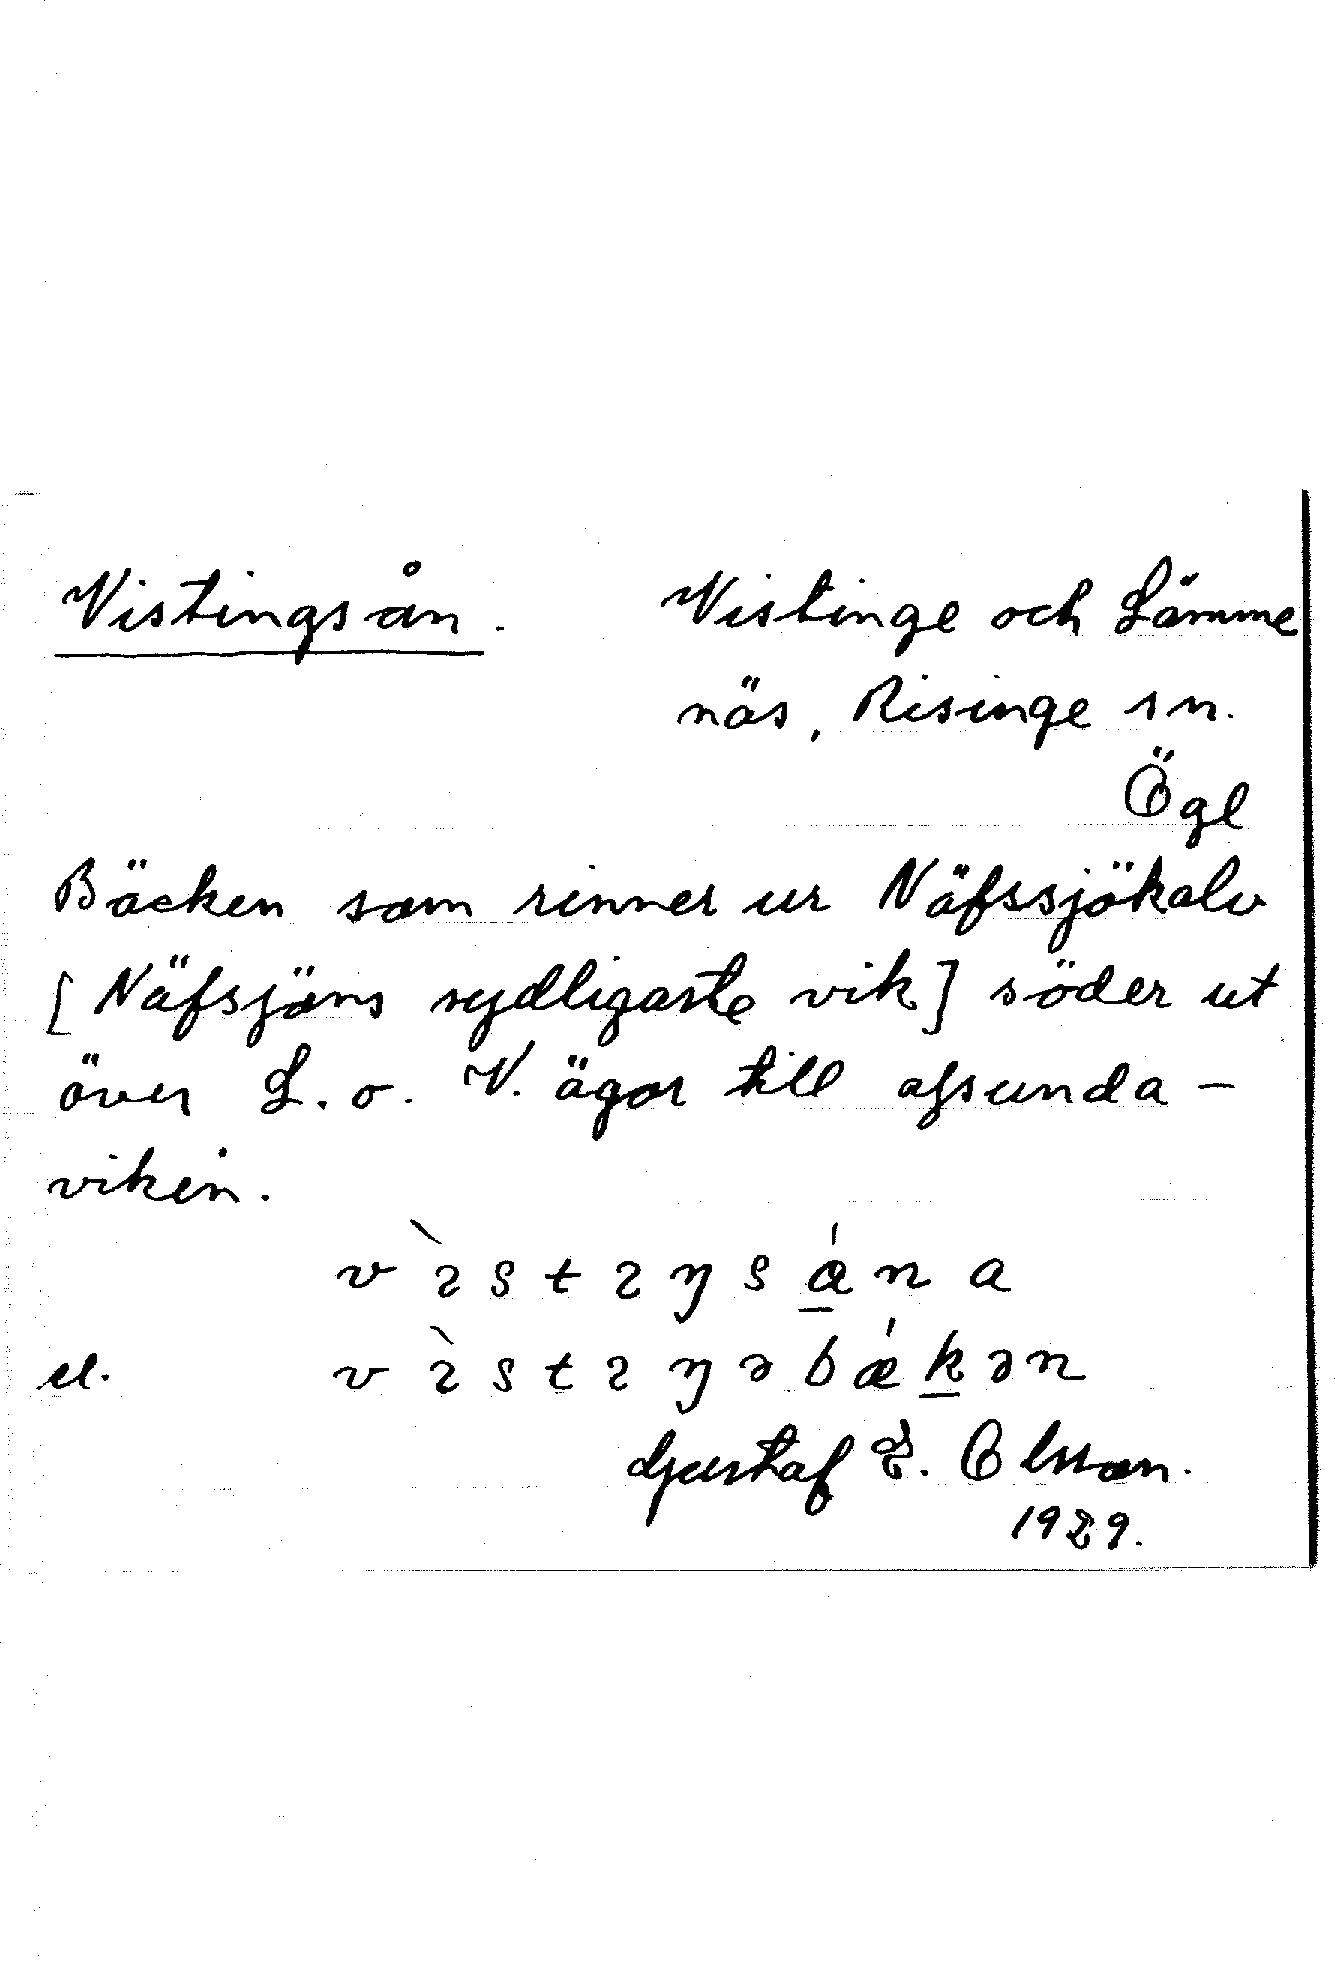 Vistingsån. Vistinge och Lämme
näs, Risinge sn.
Ögl
Bäcken som rinner ur Näfssjökalv
[Näfsjöns sydligaste vik] söder ut
över L. o. V. ägor till afsunda-
viken.
vìstıŋsǻna
el. vìstıŋəbǽkən
Gustaf E. Olsson.
1929.